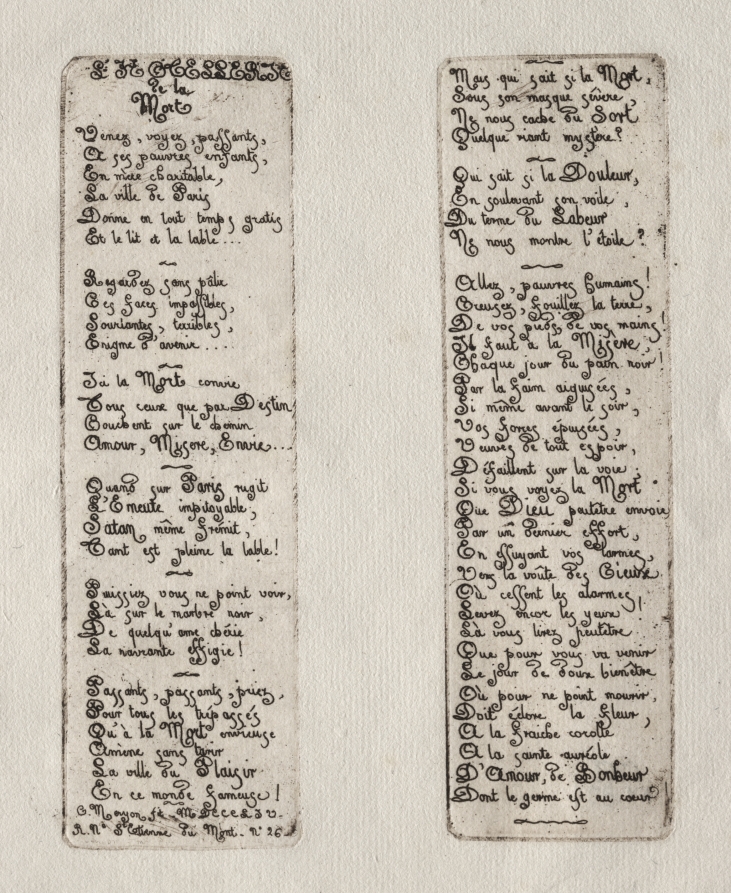 L'HÔTELLERIE
De la
Mort
Venez, voyez, passants,
A ses pauvres enfants,
En mère charitable,
La ville de Paris
Donne en tout temps gratis
Et le lit et la table...
Regardez sans pâlir
Ces faces impassibles,
Souriantes, terribles,
Enigme d'avenir....
Ici la Mort convie
Tous ceux que par Destin
Couchent sur le chemin
Amour, Misere, Envie...
Quand sur Paris rugit
L'Emeute impitoyable,
Satan même fremit,
Tant est pleine la table!
Puissiez vous ne point voir,
Là sur le marbre noir,
De quelqu'ame chérie
La navrante effigie!
Passants, passants, priez,
Pour tous les trépassés
Qu'à la Mort envieuse
Amène sans tarir
La ville du Plaisir
En ce monde fameuse!
C. Meryon ft - MDCCCLXV.
R. Nve St Etienne du Mont - No 26
Mais qui sait si la Mort,
Sous son masque sévère,
Ne nous cache du Sort
Quelque riant mystère?
Qui sait si la Douleur,
En soulevant son voile,
Du terme du Labeur
Ne nous montre l'étoile?
Allez, pauvres humains!
Creusez, fouillez la terre,
De vos pieds, de vos mains!
Il faut à la Misère,
Chaque jour du pain noir!
Par la faim aiguisées,
Si même avant le soir,
Vos forces épuisées,
Veuves de tout espoir,
Défaillent sur la voie;
Si vous voyez la Mort
Que Dieu peutêtre envoie,
Par un dernier effort,
En essuyant vos larmes,
Vers la voûte des Cieux
Où cessent les alarmes,
Levez encor les yeux!
La vous lirez peutêtre
Que pour vous va venir
Le jour de doux bienêtre
Où pour ne point mourir,
Doit éclore la fleur,
A la fraiche corolle
A la sainte auréole
D'Amour, de Bonheur
Dont le germe est au coeur!